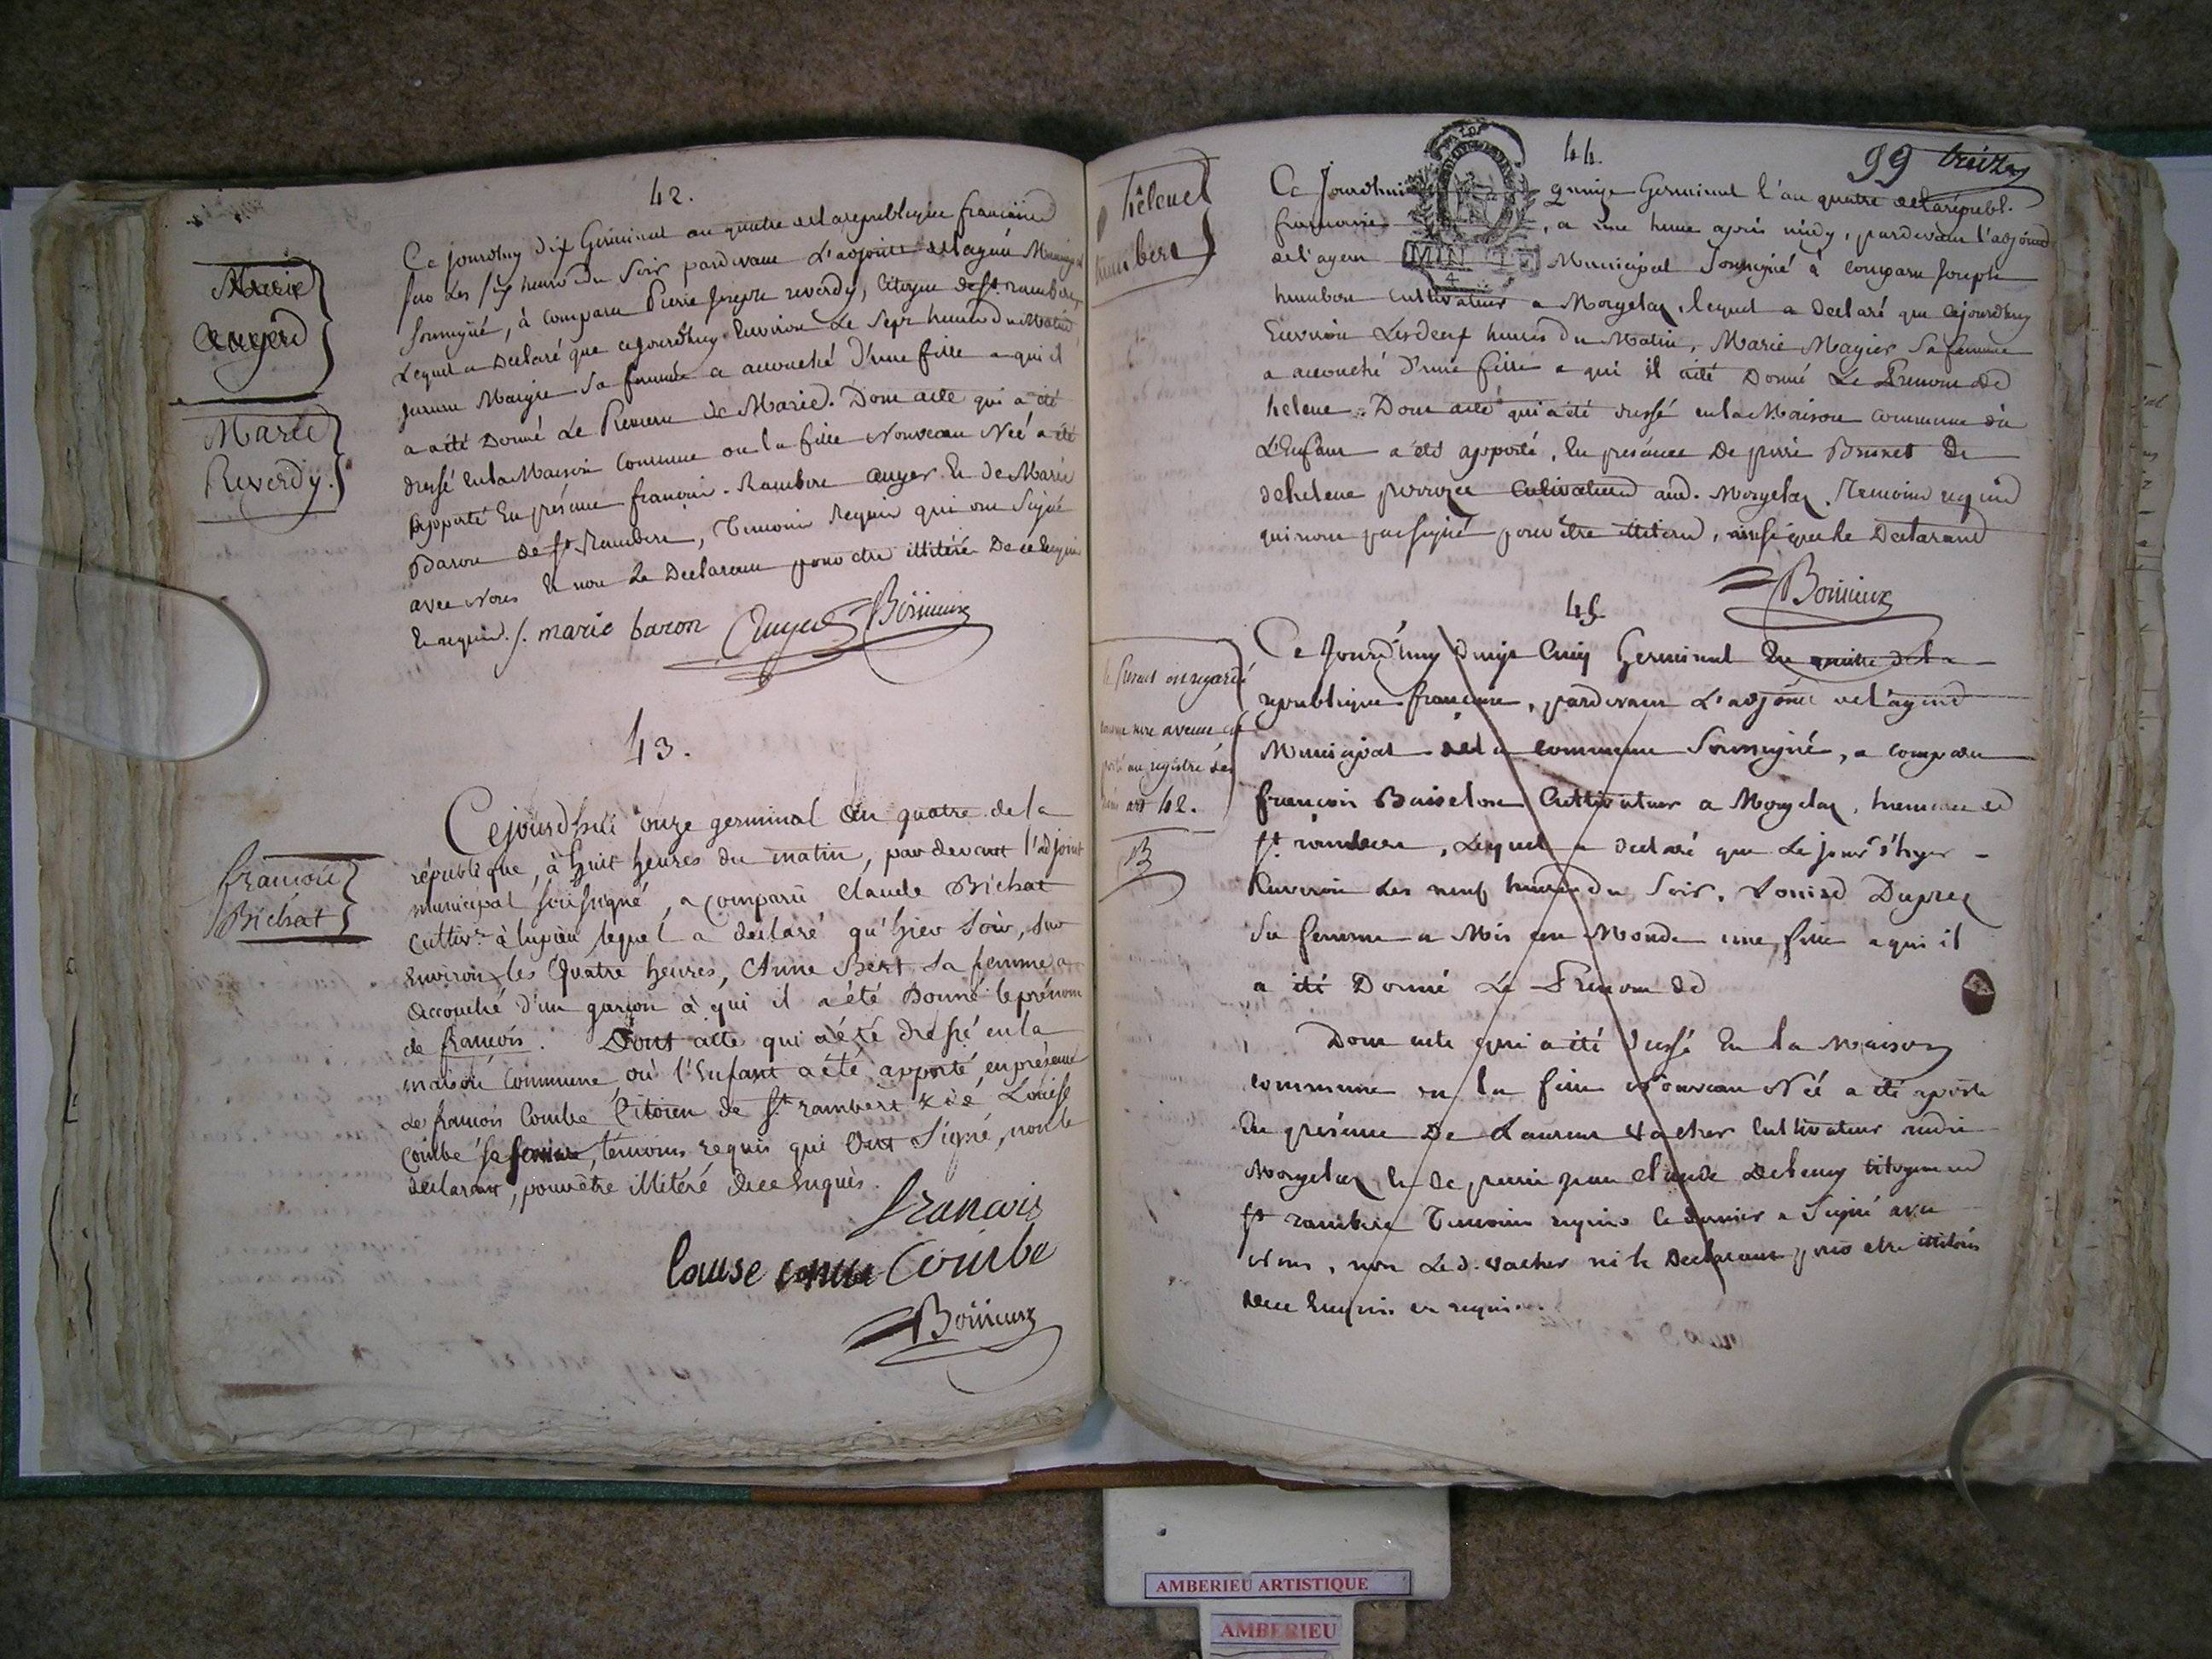 42.
Marie
Auger
Marie
Reverdy.
Ce jourdhuy dix Germinal an quatre de la republique francaise
sur les six heures du soir pardevant L'adjoint de l'agent Municipal
soussigné, à comparu Pierre Joseph reverdy, Citoyen de st. rambert,
Lequel a Declaré que cejourdhuy Environ Le Sept heures du Matin
sa femme a accouché d'une fille a qui il
a été Donné Le Prenom de Marie. Dont acte qui a été
dressé en la Maison Commune ou la fille Nouveau Née a été
apporté En présence francois-Rambert auger Et de Marie
Baron de St. Rambert, Temoins Requis qui ont Signé
avec Nous Et non Le Declarant pour etre illitéré De ce Enquis
Et requis./. marie baron Auger Bonieux
43.
francois
Bichat
Cejourd'hui onze germinal an quatre de la
république, à huit heures du matin, par devant l'adjoint
municipal soussigné, a comparü Claude Bichat
cultivr. à lupieu lequel a declaré qu'hier soir, sur
Environ les Quatre heures, Anne Bert sa femme a
accouché d'un garçon à qui il a été Donné le prénom
de francois. Dont acte qui a été dressé en la
maison Commune, où l'Enfant a été apporté, en présence
de francois Combe Citoien de St rambert & de Louise
Combe sa femme, témoins requis qui Ont Signé, non le
declarant, pour être illitéré de ce Enquis.
francois
louise Combe
Bonieux
99 treize
44.
hélene
humbert
Ce Jourdhui quinze Germinal l'an quatre de la républ.
francaise, a une heure après midy, pardevant l'adjoint
de l'agent Municipal Soussigné à Comparu Joseph
humbert Cultivateur a Morgelaz, lequel a declaré que cejourdhuy
Environ Les deux heures du Matin, Marie Magier Sa femme
a accouché d'une fille a qui il a été Donné Le Prenom de
helene. Dont acte qui a été dressé en la Maison Commune où
L'Enfant a été apporté, En presence De pierre Brunet Et
de helene perrozet Cultivateurs aud. Morgelaz. Temoins requis
qui n'ont pas signé pour être illiteré, ainsi que le Declarant
Bonieux
45.
le present enregistré
comme non avenue
porté au registre des
art 42.
B
Ce Jourd'huy Cinq Germinal an quatre de la
republique francaise, pardevant L'adjoint de l'agent
Municipal de la commune Soussigné, a comparu
francois Cultivateur a Morgelaz, hameau de
st. rambert, Lequel a declaré que Le jour d'hyer
Environ les neuf heures du Soir, Louise Duprez
Sa femme a Mis au Monde une fille a qui il
a été Donné Le Prenom de
Dont acte qui a été dressé En la Maison
commune ou la fille Nouveau Née a été aporté
En présence De Laurent Vacher Cultivateur
Morgelaz Et de jean Claude citoyen de
st rambert Temoins requis le dernier a Signé avec
Nous, non Led. Vacher ni le Declarant pour etre illiterés
de ce Enquis et requis.
MIN
4
AMBERIEU ARTISTIQUE
AMBERIEU